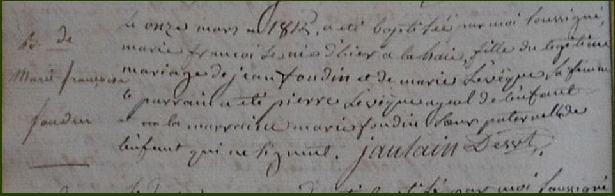 B. de
Marie françoise
fondin
Le onze mars 1812, a été baptisée par moi soussigné
marie françoise née d'hier a la haie, fille du legitime
mariage de jean fondin et de marie Levêque sa femme
le parrain a été pierre Levêque ayeul de l'enfant
et la marraine marie fondin sœur paternelle de
l'enfant qui ne signent. jaulain Desst.
par moi soussigné